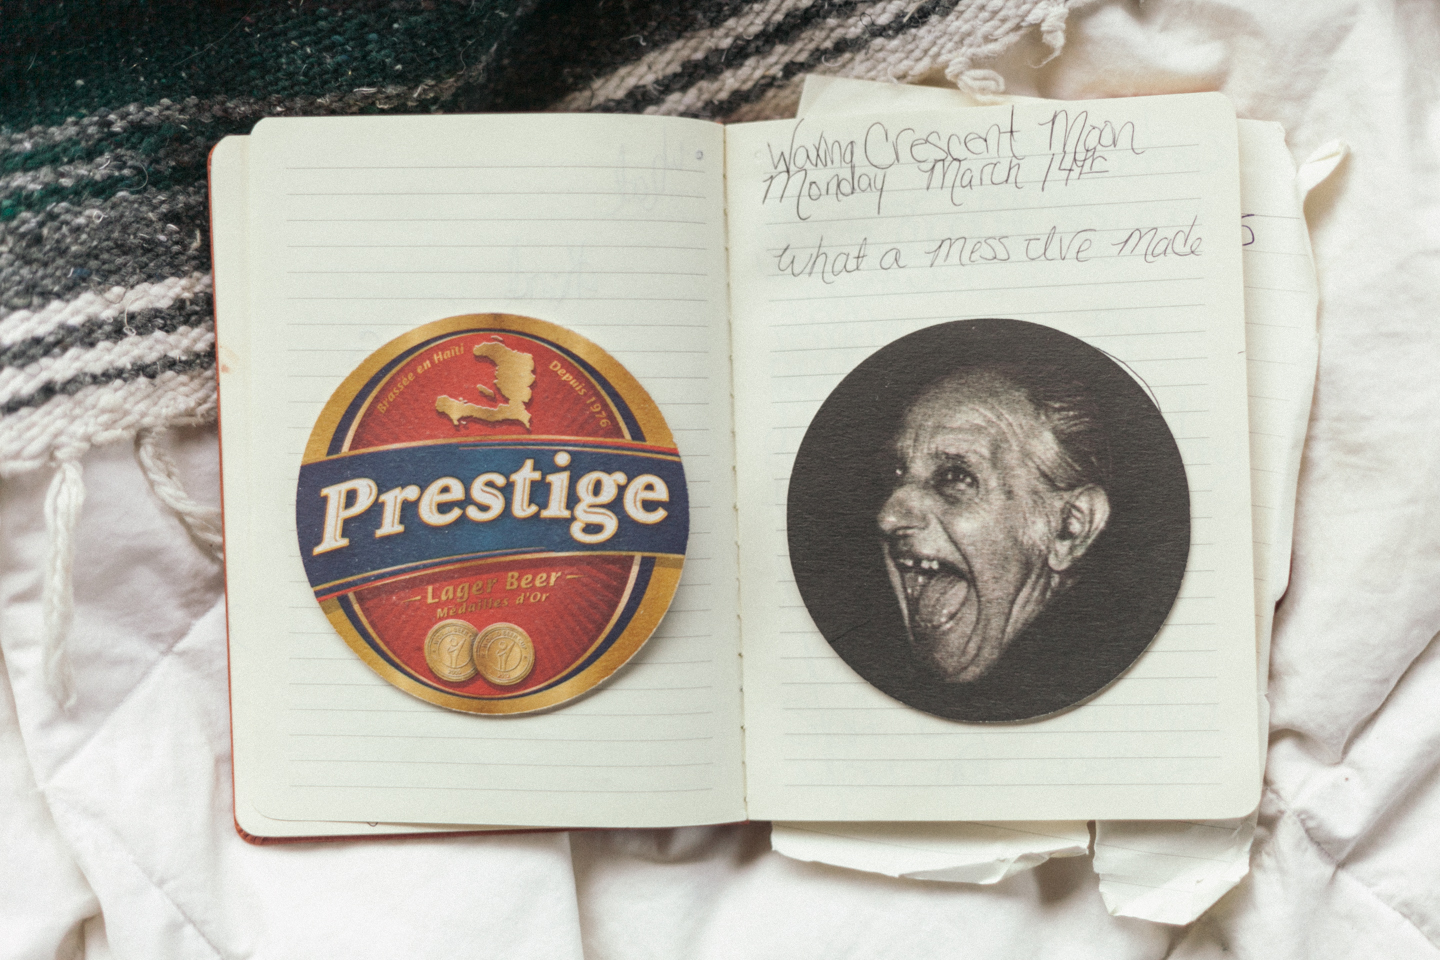 Brassée en Haïti
Depuis 1976
Prestige
Lager Beer
Médailles d'Or
Waxing Crescent Moon
Monday March 14th
What a mess I've made